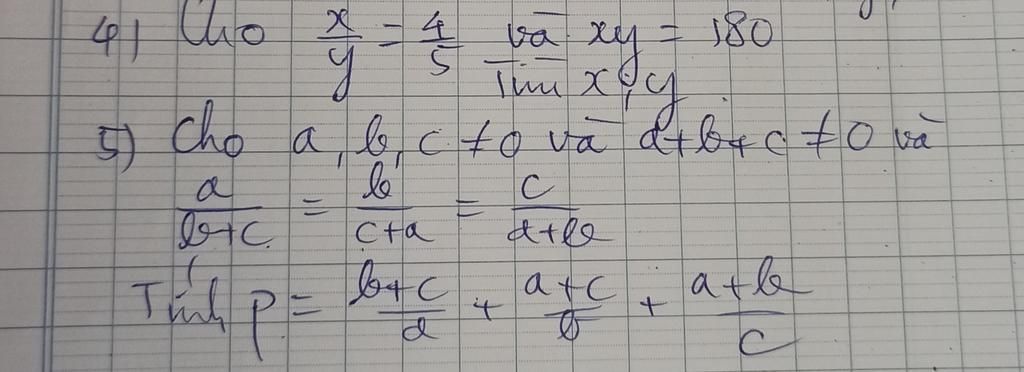 4) Cho x/y = 4/5 và xy = 180
Tìm x, y
5) Cho a, b, c ≠ 0 và a+b+c ≠ 0 và
a/(b+c) = b/(c+a) = c/(a+b)
Tính P = (b+c)/a + (a+c)/b + (a+b)/c